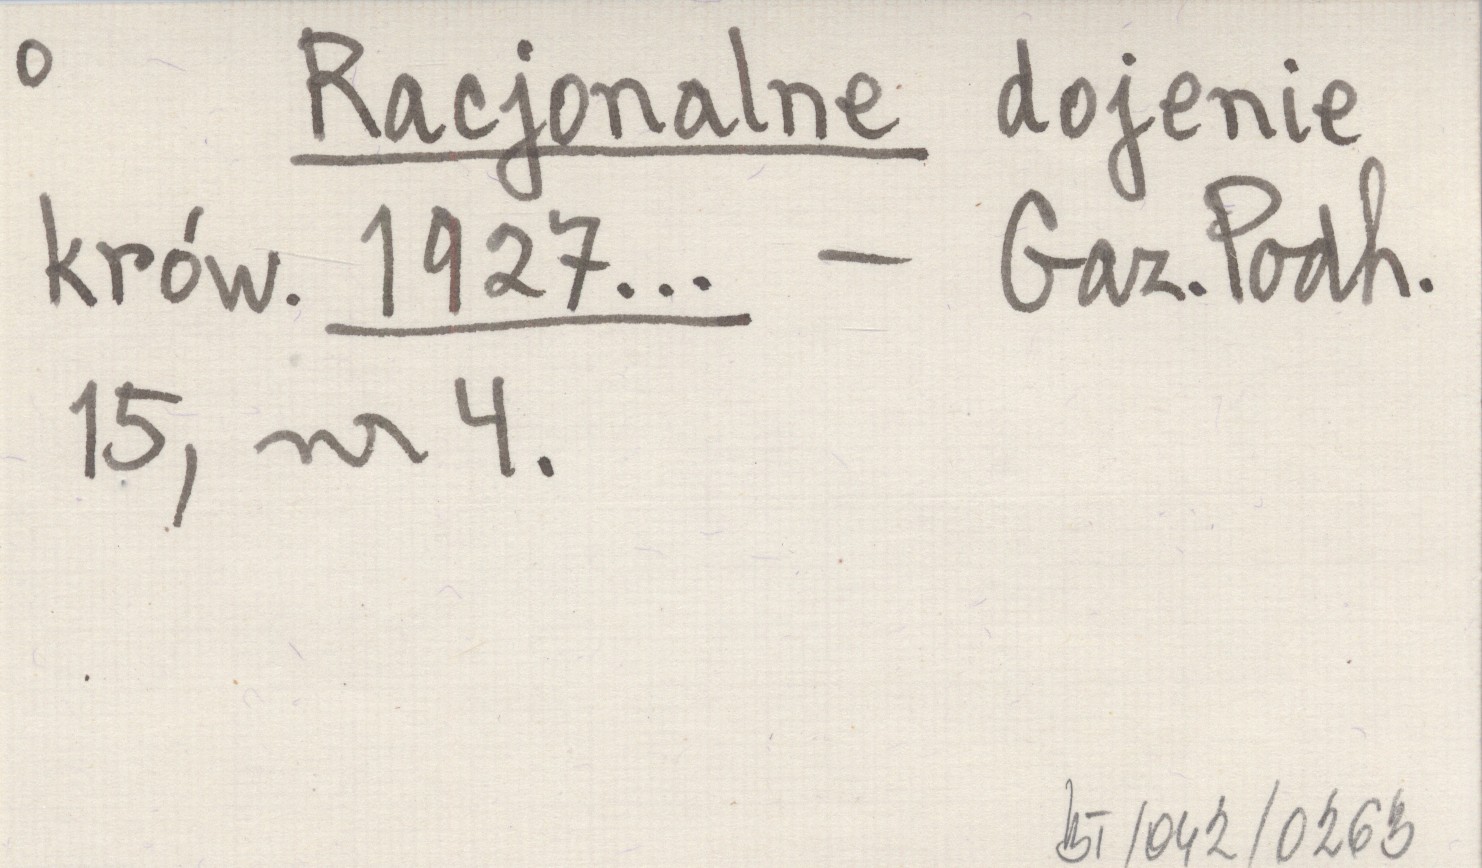 o Racjonalne dojenie
krów. 1927... – Gaz. Podh.
15, nr 4.
BI/042/0263